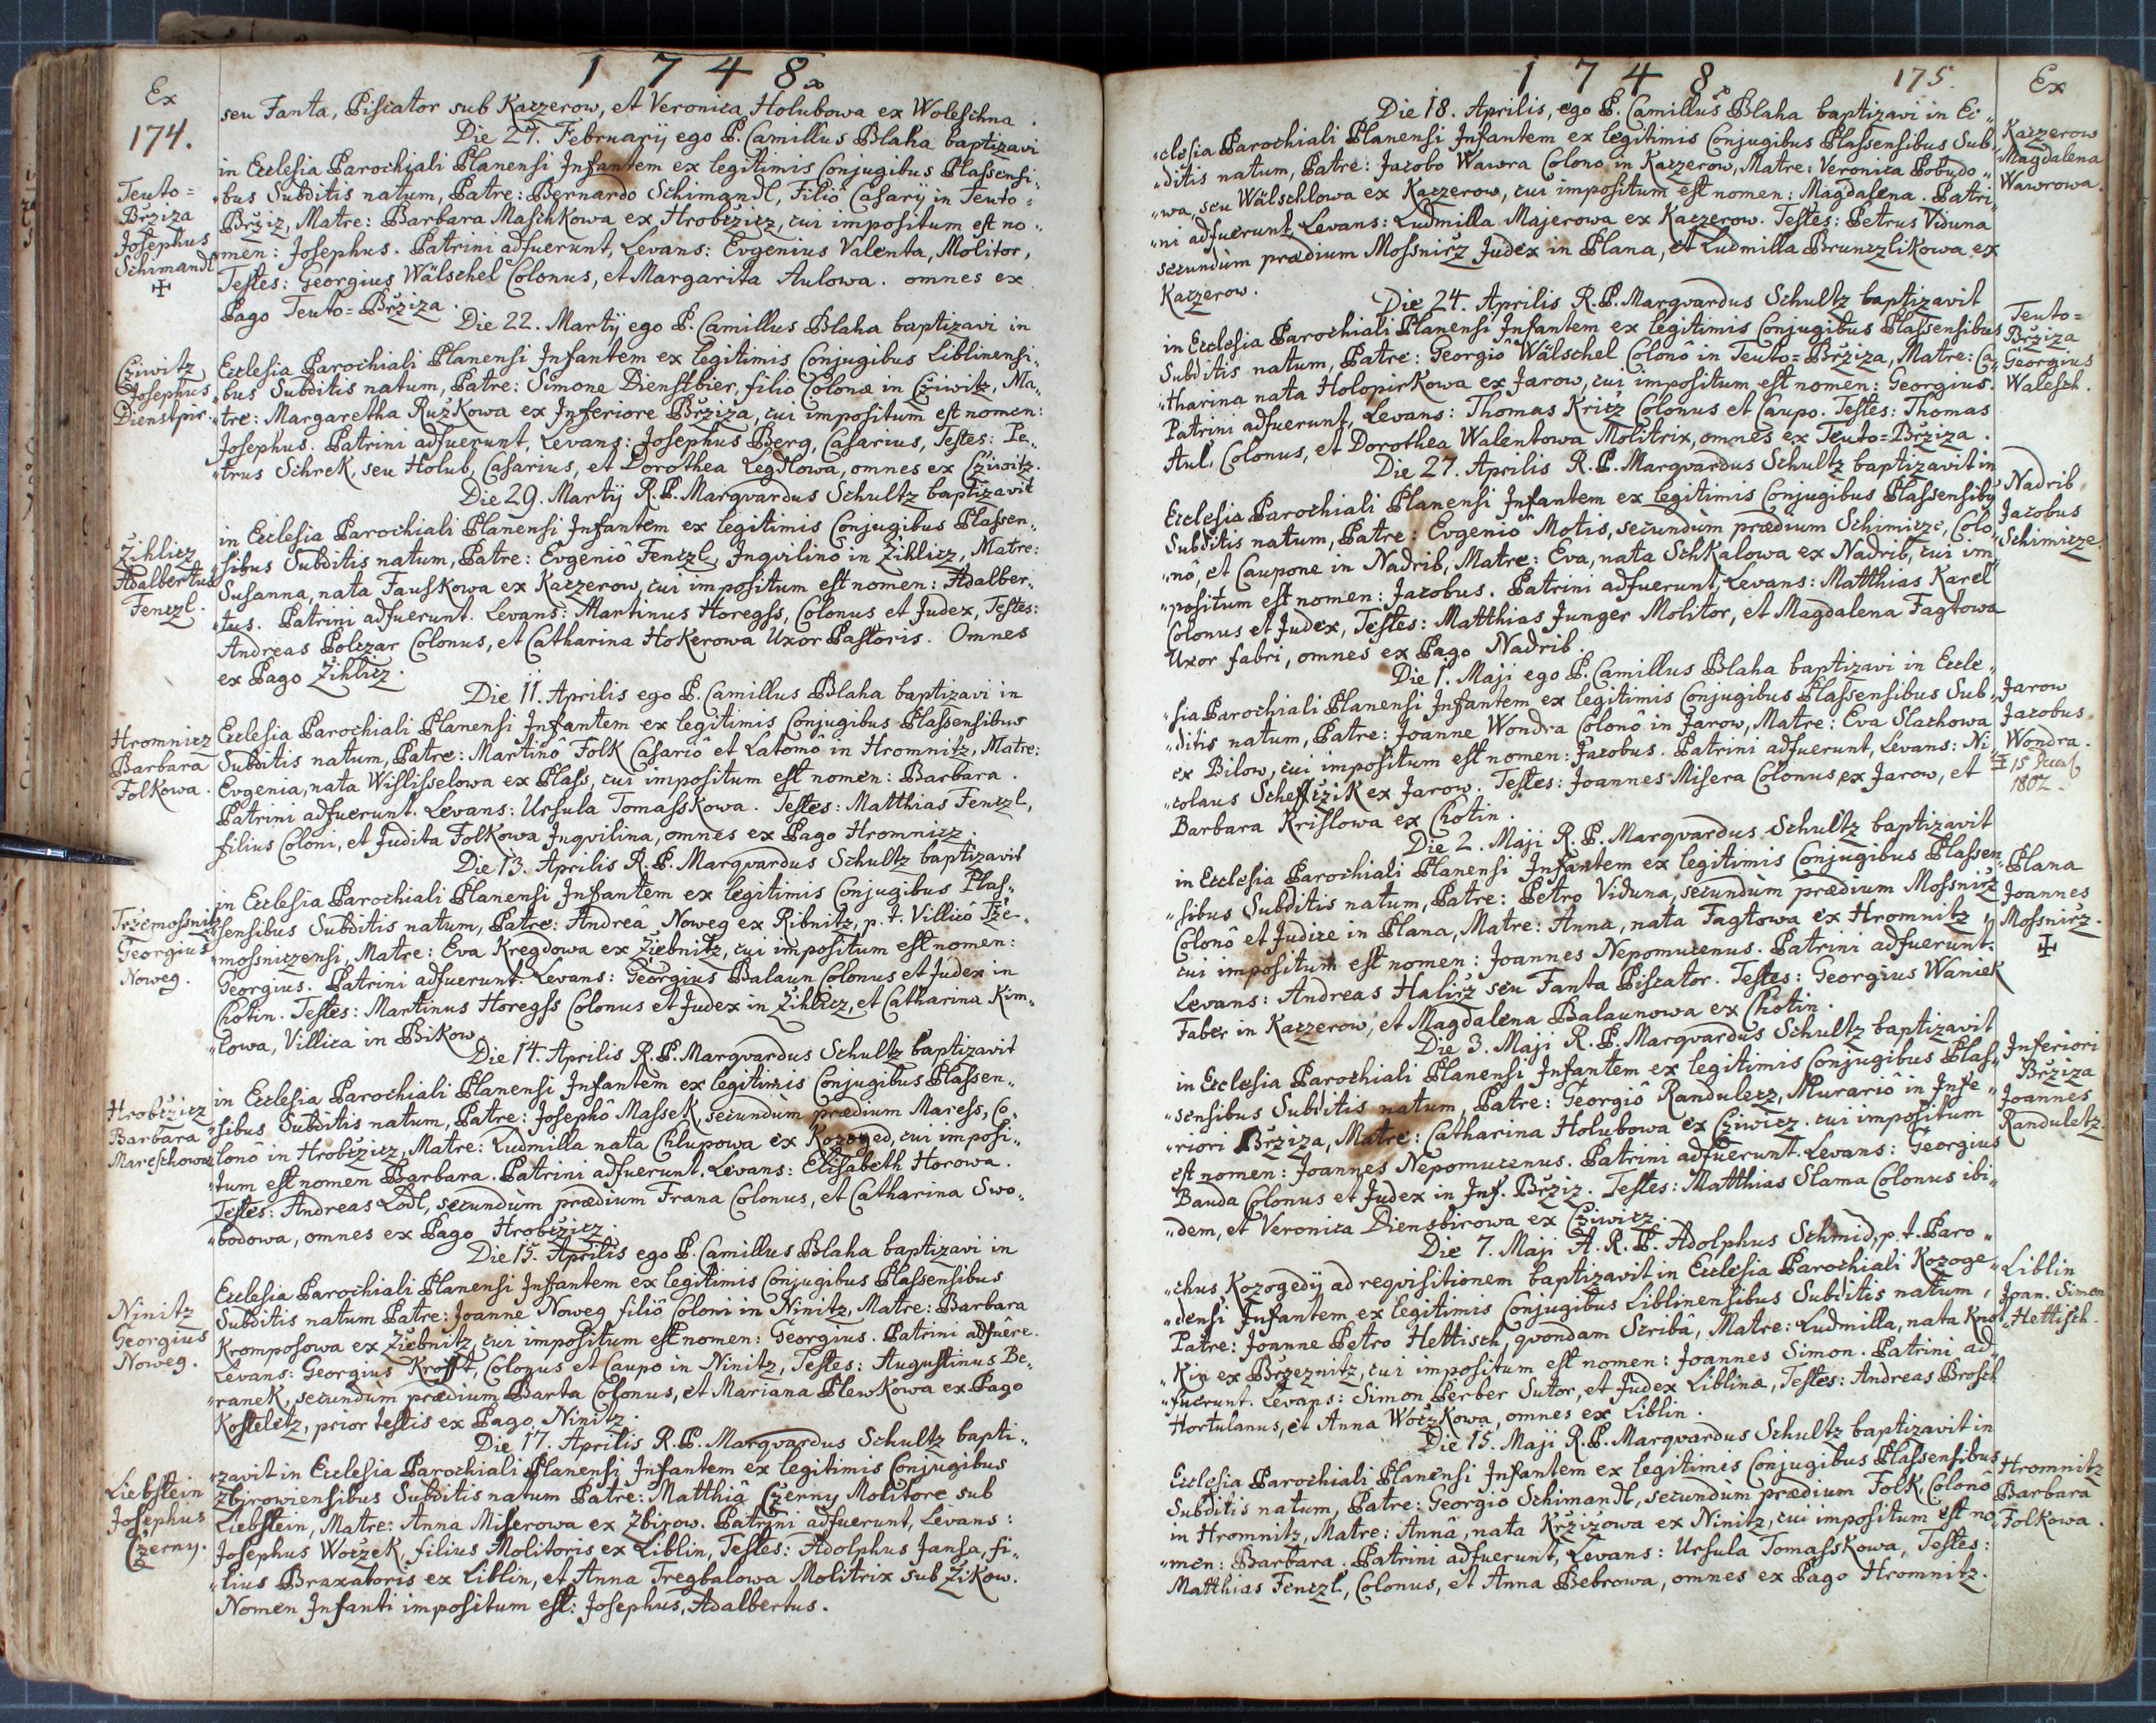 1748
Ex
174.
seu Fanta, Piscator sub Kaczerow, et Veronica Holubowa ex Woleschna.
Die 27. Februarÿ ego P. Camillus Blaha baptizavi
in Ecclesia Parochiali Planensi Infantem ex legitimis Conjugibus Plassensi„
Teuto=
„bus Subditis natum, Patre: Bernardo Schimandl, Filiô Casarÿ in Teuto=
Bržiza
Bržiz, Matre: Barbara Maschkowa ex Hrobczicz, cui impositum est no„
Josephus
„men: Josephus. Patrini adfuerunt, Levans: Evgenius Valenta, Molitor,
Schimandl
Testes: Georgius Wälschel Colonus, et Margarita Aulowa. omnes ex
Pago Teuto=Bržiza.
Die 22. Martÿ ego P. Camillus Blaha baptizavi in
Cziwitz
Ecclesia Parochiali Planensi Infantem ex legitimis Conjugibus Liblinensi„
Josephus
„bus Subditis natum, Patre: Simone Dienstbier, filio Colonæ in Cziwitz, Ma„
Dienstpir.
„tre: Margaretha Ružkowa ex Inferiore Bržiza, cui impositum est nomen:
Josephus. Patrini adfuerunt, Levans: Josephus Berg, Casarius, Testes: Pe„
„trus Schrek, seu Holub, Casarius, et Dorothea Legdlowa, omnes ex Cziwitz.
Die 29. Martÿ R.P. Marqvardus Schultz baptizavit
in Ecclesia Parochiali Planensi Infantem ex legitimis Conjugibus Plassen„
Žihlicz
„sibus Subditis natum, Patre: Evgeniô Fenczl, Inqvilinô in Žihlicz, Matre:
Adalbertus
Susanna, nata Fauskowa ex Kaczerow, cui impositum est nomen: Adalber„
Fenczl.
„tus. Patrini adfuerunt. Levans: Martinus Horegss, Colonus et Judex, Testes:
Andreas Polczar Colonus, et Catharina Hokerowa Uxor Pastoris. Omnes
ex Pago Žihlicz.
Die 11. Aprilis ego P. Camillus Blaha baptizavi in
Hromnicz
Ecclesia Parochiali Planensi Infantem ex legitimis Conjugibus Plassensibus
Barbara
Subditis natum, Patre: Martinô Folk Casariô et Latomô in Hromnitz, Matre:
Folkowa.
Evgenia, nata Wislisselowa ex Plass, cui impositum est nomen: Barbara.
Patrini adfuerunt. Levans: Ursula Tomasskowa. Testes: Matthias Fenczl,
filius Coloni, et Judita Folkowa Inqvilina, omnes ex Pago Hromnicz.
Die 13. Aprilis R.P. Marqvardus Schultz baptizavit
in Ecclesia Parochiali Planensi Infantem ex legitimis Conjugibus Plas„
Tržemossnitz
„sensibus Subditis natum, Patre: Andreâ Noweg ex Ribnitz, p.t. Villicô Tže„
Georgius
„mossniczensi, Matre: Eva Kregdowa ex Žiebnitz, cui impositum est nomen:
Noweg.
Georgius. Patrini adfuerunt. Levans: Georgius Balaun Colonus et Judex in
Chotin. Testes: Martinus Horegss Colonus et Judex in Žihlicz, et Catharina Kim„
„lowa, Villica in Bikow.
Die 14. Aprilis R.P. Marqvardus Schultz baptizavit
in Ecclesia Parochiali Planensi Infantem ex legitimis Conjugibus Plassen„
Hrobczicz
„sibus Subditis natum, Patre: Josephô Massek, secundùm prædium Maress, Co„
Barbara
„lonô in Hrobczicz, Matre: Ludmilla nata Chlupowa ex Kozoged, cui imposi„
Mareschowa
„tum est nomen Barbara. Patrini adfuerunt. Levans: Elisabeth Horowa.
Testes: Andreas Lodl, secundùm prædium Frana Colonus, et Catharina Swo„
„bodowa, omnes ex Pago Hrobczicz.
Die 15. Aprilis ego P. Camillus Blaha baptizavi in
Ecclesia Parochiali Planensi Infantem ex legitimis Conjugibus Plassensibus
Ninitz
Subditis natum Patre: Joanne Noweg filiô Coloni in Ninitz, Matre: Barbara
Georgius
Kromposowa ex Žiebnitz, cui impositum est nomen: Georgius. Patrini adfuêre.
Noweg.
Levans: Georgius Krofft, Colonus et Caupo in Ninitz, Testes: Augustinus Be„
„ranek, secundùm prædium Barta Colonus, et Mariana Plewkowa ex Pago
Kosteletz, prior testis ex Pago Ninitz.
Die 17. Aprilis R.P. Marqvardus Schultz bapti„
„zavit in Ecclesia Parochiali Planensi Infantem ex legitimis Conjugibus
Liebstein
Zbirowiensibus Subditis natum Patre: Matthiâ Czerny Molitore sub
Josephus
Liebstein, Matre: Anna Miserowa ex Zbirow. Patrini adfuerunt, Levans:
Czerny.
Josephus Woczek, filius Molitoris ex Liblin, Testes: Adolphus Jansa, fi„
„lius Braxatoris ex Liblin, et Anna Tregbalowa Molitrix sub Žikow.
Nomen Infanti impositum est: Josephus, Adalbertus.
1748
175.
Ex
Die 18. Aprilis, ego P. Camillus Blaha baptizavi in Ec„
„clesia Parochiali Planensi Infantem ex legitimis Conjugibus Plassensibus Sub„
Kaczerow
„ditis natum, Patre: Jacobo Wawra Colono in Kaczerow, Matre: Veronica Pobudo„
Magdalena
„wa, seu Wälschlowa ex Kaczerow, cui impositum est nomen: Magdalena. Patri„
Wawrowa.
„ni adfuerunt, Levans: Ludmilla Majerowa ex Kaczerow. Testes: Petrus Viduna
secundùm prædium Mossnicz Judex in Plana, et Ludmilla Brunczlikowa ex
Kaczerow.
Die 24. Aprilis R.P. Marqvardus Schultz baptizavit
Teuto=
in Ecclesia Parochiali Planensi Infantem ex legitimis Conjugibus Plassensibus
Bržiza
Subditis natum, Patre: Georgiô Wälschel Colonô in Teuto=Bržiza, Matre: Ca„
Georgius
„tharina nata Holopirkowa ex Jarow, cui impositum est nomen: Georgius.
Walesch.
Patrini adfuerunt, Levans: Thomas Kricz Colonus et Caupo. Testes: Thomas
Aul, Colonus, et Dorothea Walentowa Molitrix, omnes ex Teuto=Bržiza.
Die 27. Aprilis R.P. Marqvardus Schultz baptizavit in
Nadrib
Ecclesia Parochiali Planensi Infantem ex legitimis Conjugibus Plassensibq
Jacobus
Subditis natum, Patre: Evgeniô Motis, secundùm prædium Schimicze, Colo„
Schimicze.
„nô, et Caupone in Nadrib, Matre: Eva, nata Schkalowa ex Nadrib, cui im„
„positum est nomen: Jacobus. Patrini adfuerunt, Levans: Matthias Karel
Colonus et Judex, Testes: Matthias Junger Molitor, et Magdalena Fagtowa
Uxor fabri, omnes ex Pago Nadrib.
Die 1. Maji ego P. Camillus Blaha baptizavi in Eccle„
Jarow
„sia Parochiali Planensi Infantem ex legitimis Conjugibus Plassensibus Sub„
Jacobus
„ditis natum, Patre: Joanne Wondra Colonô in Jarow, Matre: Eva Slachowa
Wondra.
ex Bilow, cui impositum est nomen: Jacobus. Patrini adfuerunt, Levans: Ni„
15
„colaus Schefczik ex Jarow. Testes: Joannes Misera Colonus ex Jarow, et
1802.
Barbara Krislowa ex Chotin.
Die 2. Maji R.P. Marqvardus Schultz baptizavit
Plana
in Ecclesia Parochiali Planensi Infantem ex legitimis Conjugibus Plassen„
Joannes
„sibus Subditis natum, Patre: Petro Viduna, secundùm prædium Mossnicz
Mossnicz.
Colonô et Judice in Plana, Matre: Anna, nata Fagtowa ex Hromnitz,
cui impositum est nomen: Joannes Nepomucenus. Patrini adfuerunt.
Levans: Andreas Halicz seu Fanta Piscator. Testes: Georgius Waniek
Faber in Kaczerow, et Magdalena Balaunowa ex Chotin.
Die 3. Maji R.P. Marqvardus Schultz baptizavit
Inferiori
in Ecclesia Parochiali Planensi Infantem ex legitimis Conjugibus Plas„
Bržiza
„sensibus Subditis natum, Patre: Georgiô Randulecz, Murariô in Infe„
Joannes
„riori Bržiza, Matre: Catharina Holubowa ex Cziwicz. cui impositum
Randuletz.
est nomen: Joannes Nepomucenus. Patrini adfuerunt. Levans: Georgius
Banda Colonus et Judex in Inf. Bržiz. Testes: Matthias Slama Colonus ibi„
„dem, et Veronica Diensbirowa ex Cziwicz.
Die 7. Maji A.R.P. Adolphus Schmid, p.t. Paro„
Liblin
„chus Kozogedÿ ad reqvisitionem baptizavit in Ecclesia Parochiali Kozoge„
Joan. Simon
„densi Infantem ex legitimis Conjugibus Liblinensibus Subditis natum,
Hettisch.
Patre: Joanne Petro Hettisch, qvondam Scribâ, Matre: Ludmilla, nata Kno„
„Kin ex Bržeznitz, cui impositum est nomen: Joannes Simon. Patrini ad„
„fuerunt. Levans: Simon Perber Sutor, et Judex Liblinæ, Testes: Andreas Brosch
Hortulanus, et Anna Woczkowa, omnes ex Liblin.
Die 15. Maji R.P. Marqvardus Schultz baptizavit in
Hromnitz
Ecclesia Parochiali Planensi Infantem ex legitimis Conjugibus Plassensibus
Barbara
Subditis natum, Patre: Georgiô Schimandl, secundum prædium Folk, Colonô
Folkowa.
in Hromnitz, Matre: Annâ, nata Kržižowa ex Ninitz, cui impositum est no„
„men: Barbara. Patrini adfuerunt, Levans: Ursula Tomasskowa, Testes:
Matthias Fenczl, Colonus, et Anna Bebrowa, omnes ex Pago Hromnitz.